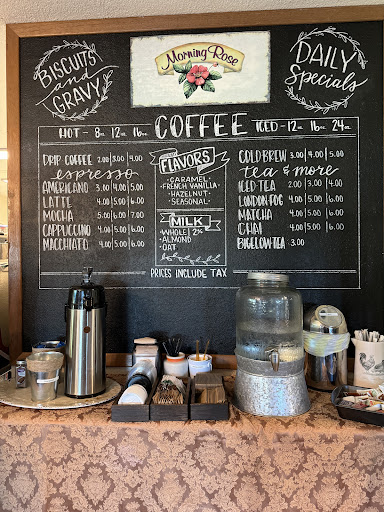 BISCUITS
and
GRAVY
Morning Rose
DAILY
Specials
HOT - 8oz 12oz 16oz COFFEE ICED - 12oz 16oz 24oz
DRIP COFFEE 2.00 | 3.00 | 4.00
espresso
AMERICANO 3.00 | 4.00 | 5.00
LATTE 4.00 | 5.00 | 6.00
MOCHA 5.00 | 6.00 | 7.00
CAPPUCCINO 4.00 | 5.00 | 6.00
MACCHIATO 4.00 | 5.00 | 6.00
FLAVORS
- CARAMEL -
- FRENCH VANILLA -
- HAZELNUT -
- SEASONAL -
MILK
- WHOLE | 2%
- ALMOND
- OAT
COLD BREW 3.00 | 4.00 | 5.00
tea & more
ICED TEA 2.00 | 3.00 | 4.00
LONDON FOG 4.00 | 5.00 | 6.00
MATCHA 4.00 | 5.00 | 6.00
CHAI 4.00 | 5.00 | 6.00
BIGELOW TEA 3.00
PRICES INCLUDE TAX